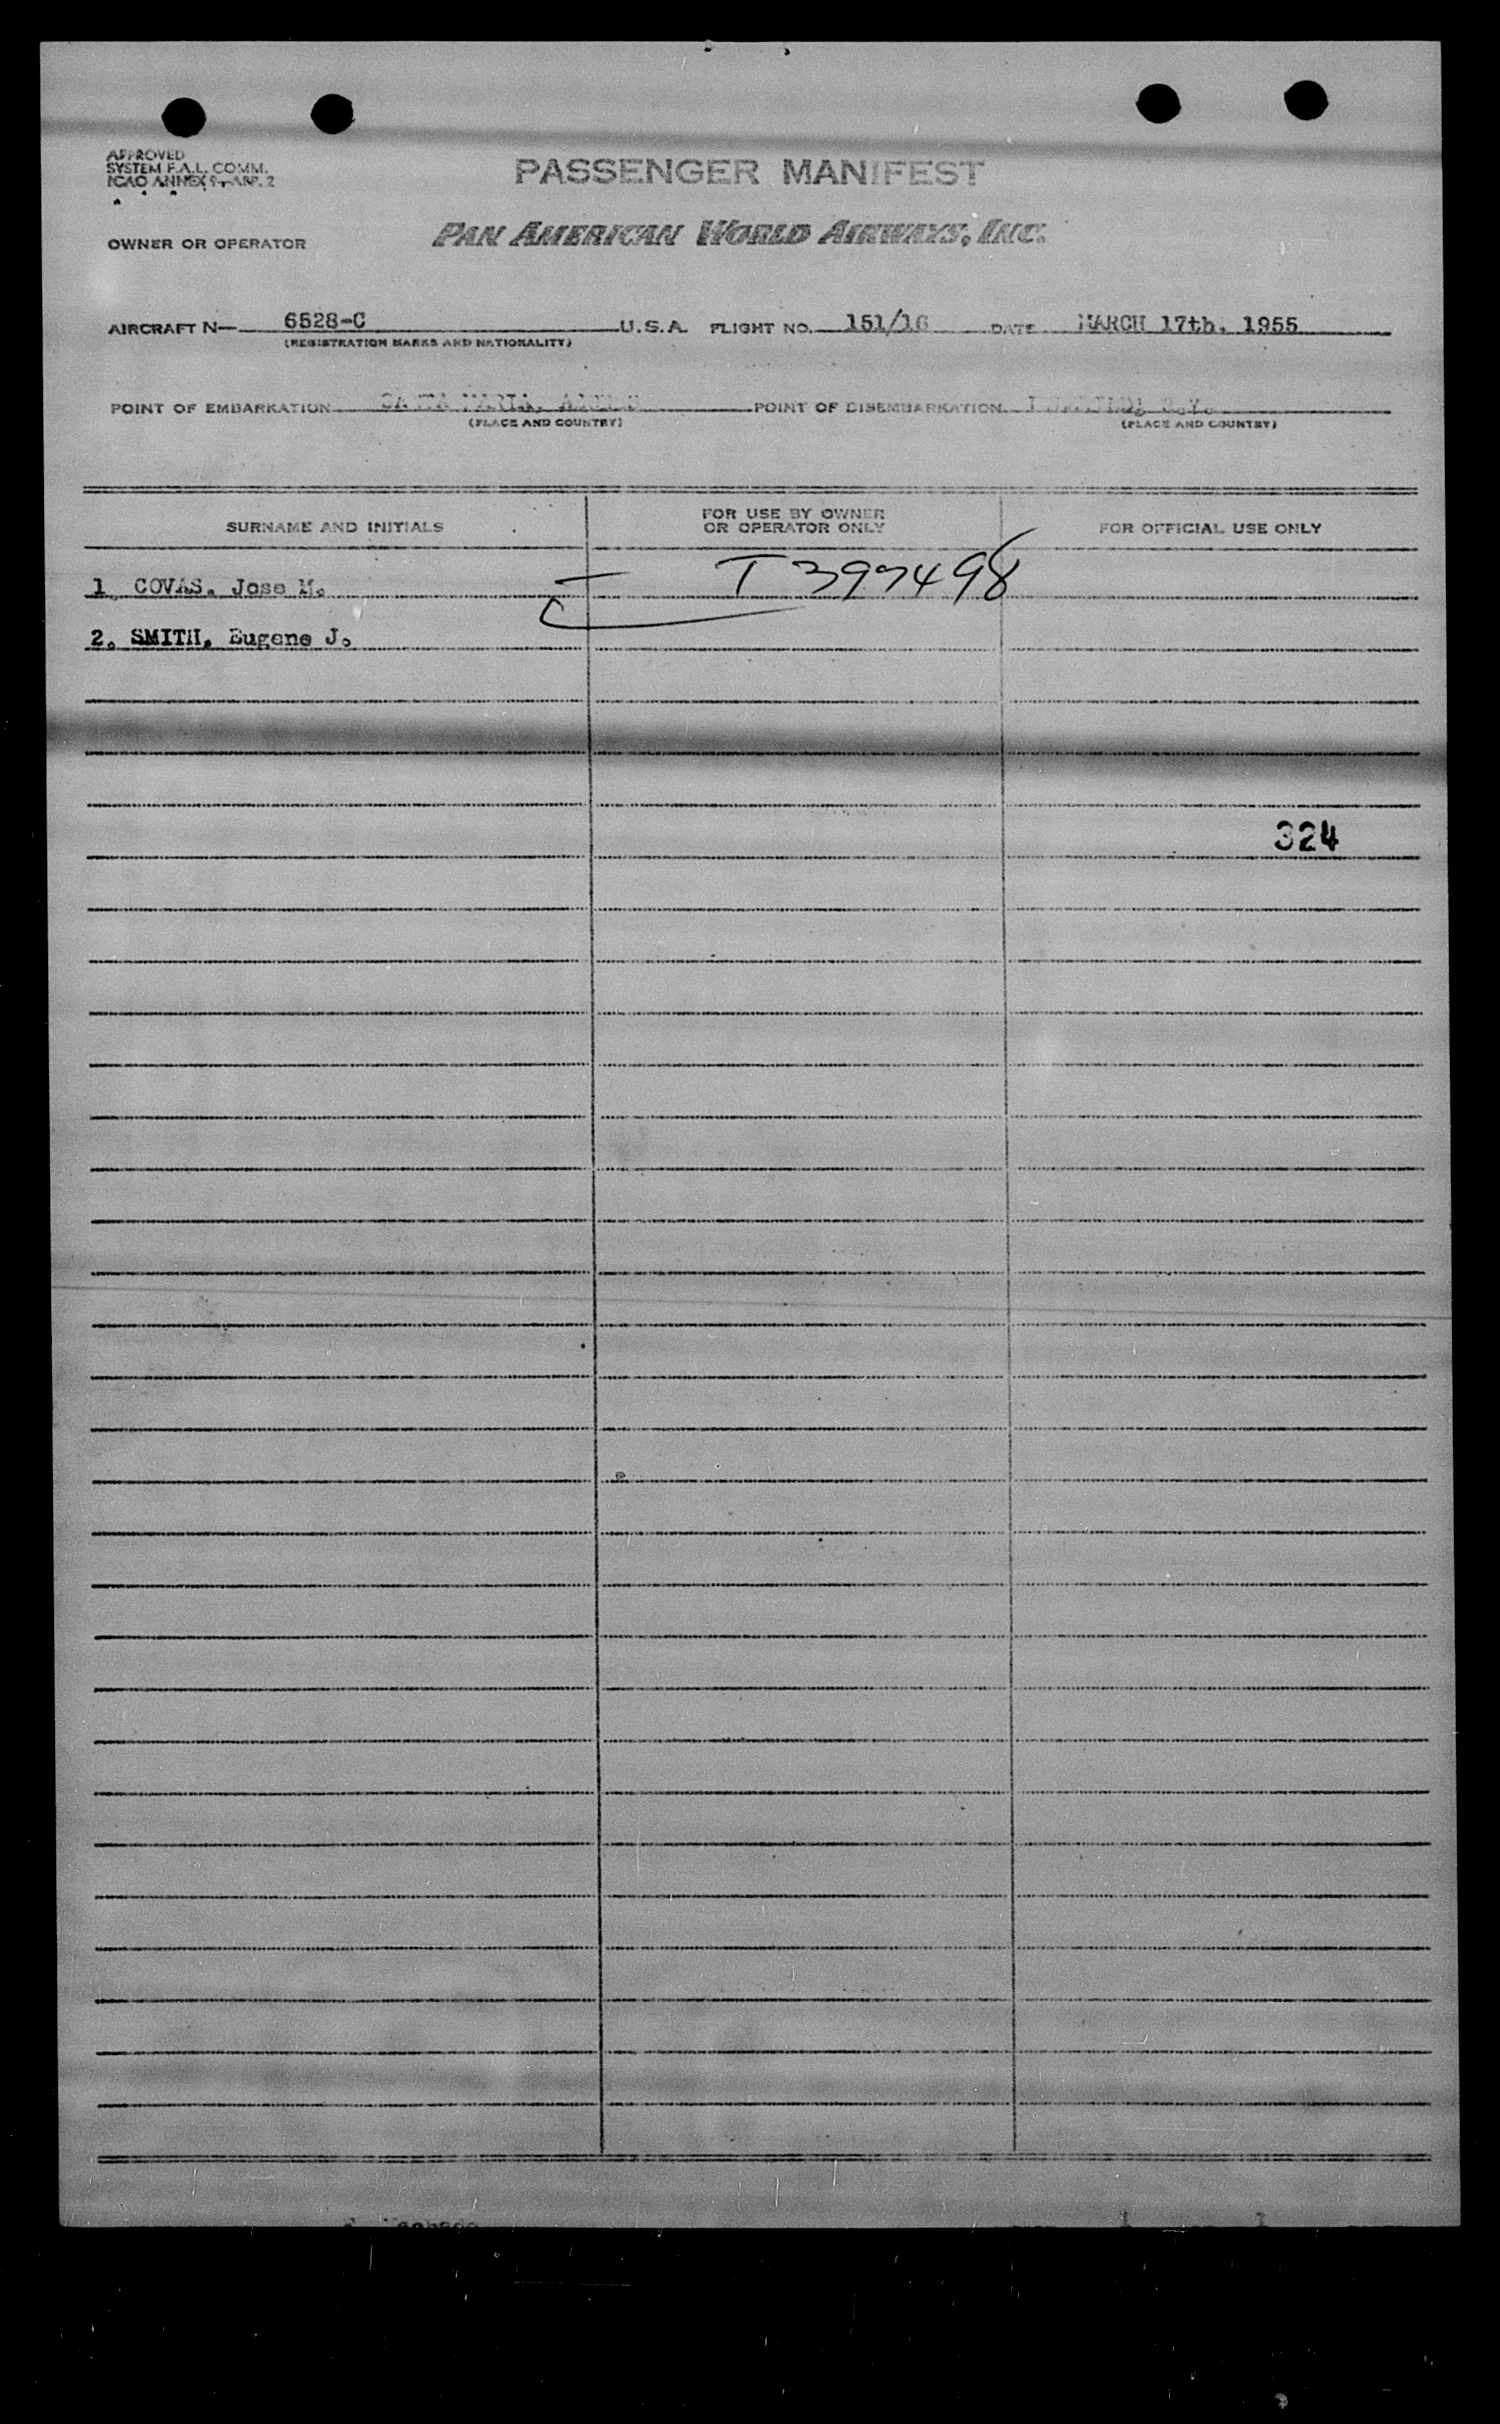 APPROVED
SYSTEM F.A.L. COMM.
ICAO ANNEX 9-APP. 2
PASSENGER MANIFEST
OWNER OR OPERATOR PAN AMERICAN WORLD AIRWAYS, INC.
AIRCRAFT N— 6528-C U.S.A. FLIGHT NO. 151/16 DATE MARCH 17th. 1955
(REGISTRATION MARKS AND NATIONALITY)
POINT OF EMBARKATION SANTA MARIA, POINT OF DISEMBARKATION N.Y.
(PLACE AND COUNTRY) (PLACE AND COUNTRY)
SURNAME AND INITIALS FOR USE BY OWNER OR OPERATOR ONLY FOR OFFICIAL USE ONLY
1. COVAS. Jose M. T 397498
2. SMITH, Eugene J.
324